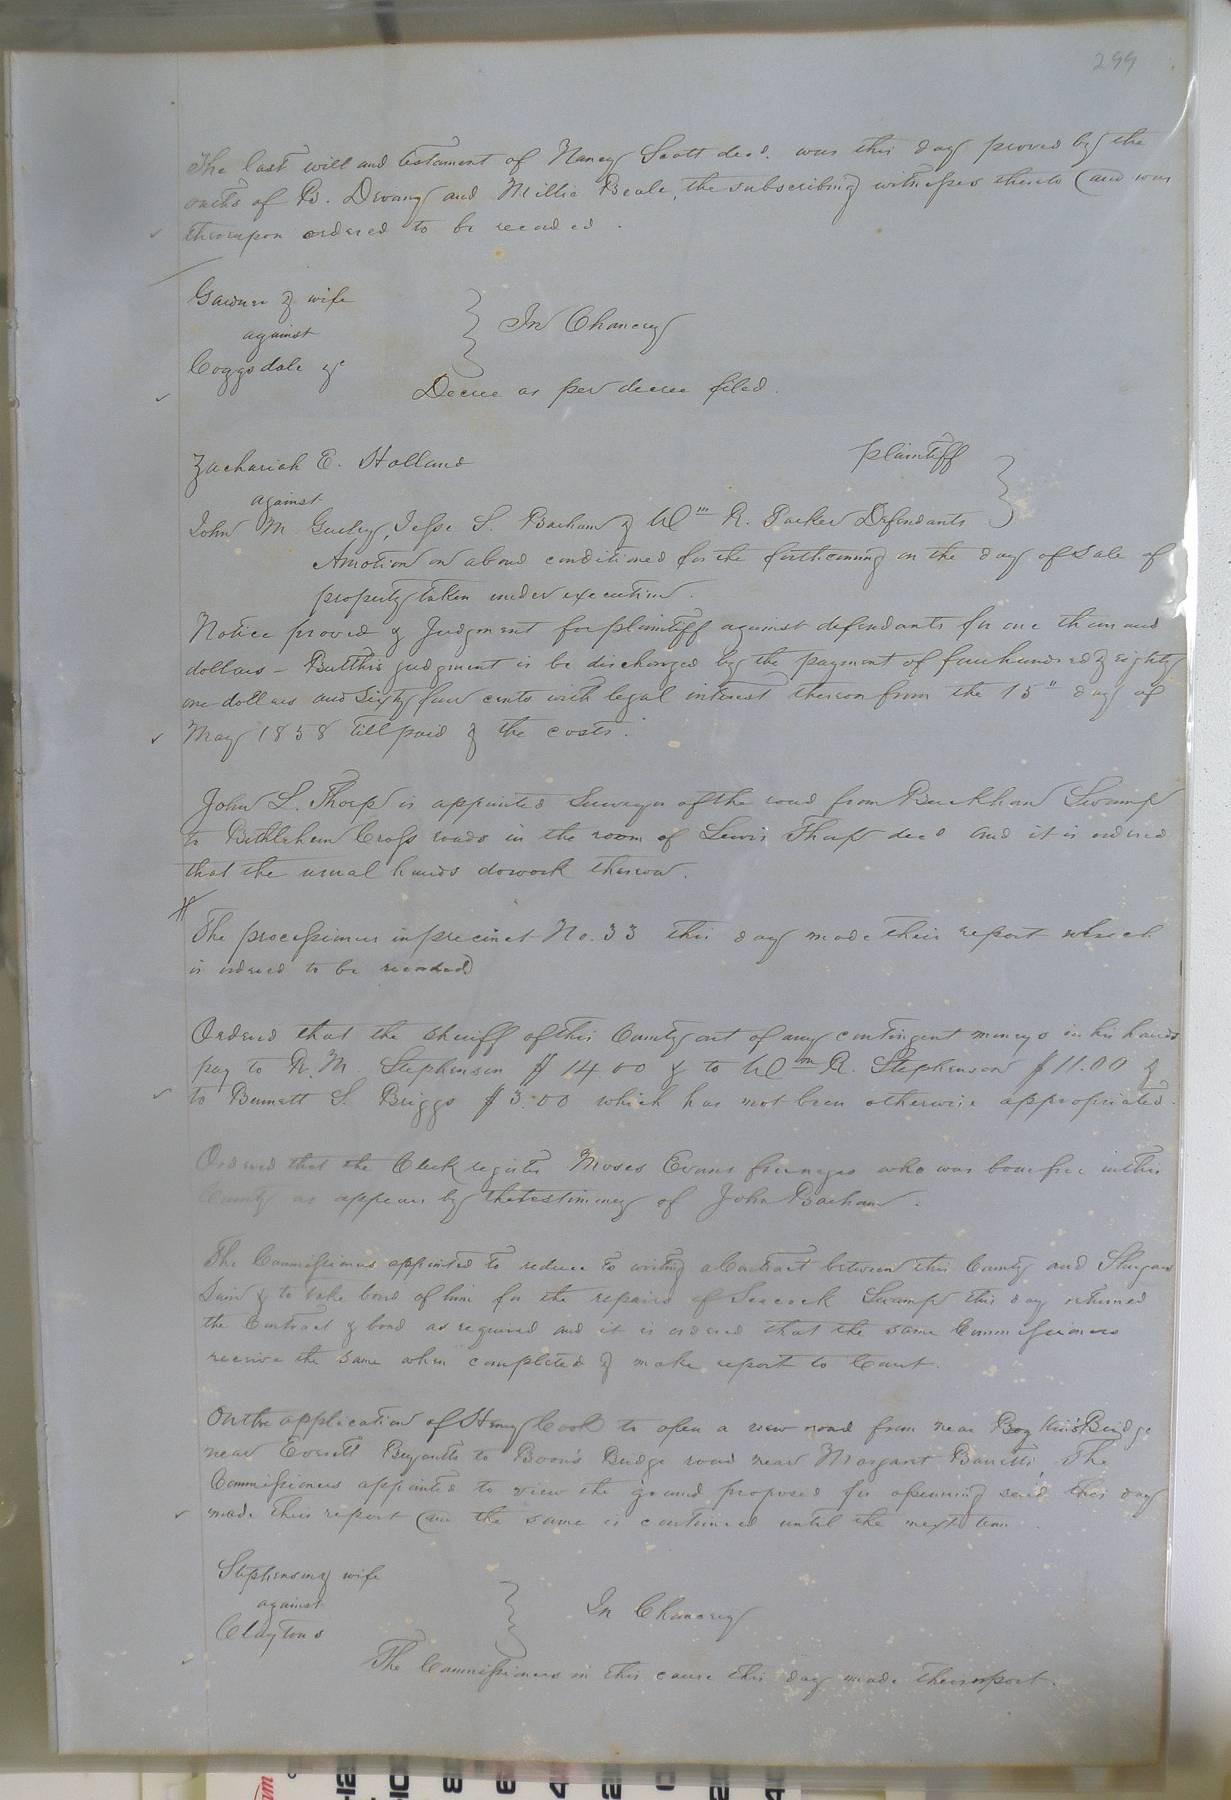 299
The last will and testament of Nancy Scott decd. was this day proved by the
oaths of B. Devany and Millie Beale, the subscribing witnesses thereto and was
thereupon ordered to be recorded.
Gardner & wife
against
Coggsdale &c
In Chancery
Decree as per decree filed.
Zachariah E. Holland plaintiff
against
John M. Gurley, Jesse S. Barham & Wm R. Parker Defendants
A motion on a bond conditioned for the forthcoming on the day of Sale of
property taken under execution.
Notice proved & Judgment for plaintiff against defendants for one thousand
dollars – But this judgment is be discharged by the payment of four hundred & eighty
one dollars and Sixty four cents with legal interest thereon from the 15" day of
May 1858 till paid & the costs.
John L. Thorp is appointed Surveyor of the road from Buckhan Swamp
to Bethlehem Cross roads in the room of Lewis Thorp decd and it is ordered
that the usual hands do work thereon.
The processioners in precinct No. 33 this day made their report which
is ordered to be recorded
Ordered that the Sheriff of this County out of any contingent moneys in his hands
pay to R. M. Stephenson $14.00 & to Wm R. Stephenson $11.00 &
to Bennett S. Briggs $3.00 which has not been otherwise appropriated.
Ordered that the Clerk register Moses Evans free negro who was born free in this
County as appears by the testimony of John Barham.
The Commissioners appointed to reduce to writing a Contract between this County and
& to take bond of him for the repairs of Seacock Swamp this day returned
the Contract & bond as required and it is ordered that the same Commissioners
receive the same when completed & make report to Court.
On the application of Henry Cook to open a new road from near Boykin's Bridge
near Everett Bryants to Boon's Bridge road near Margaret Barretts, The
Commissioners appointed to view the ground proposed for opening said this day
made their report and the same is continued until the next term
Stephenson & wife
against
Claytons
In Chancery
The Commissioners in this cause this day made their report.